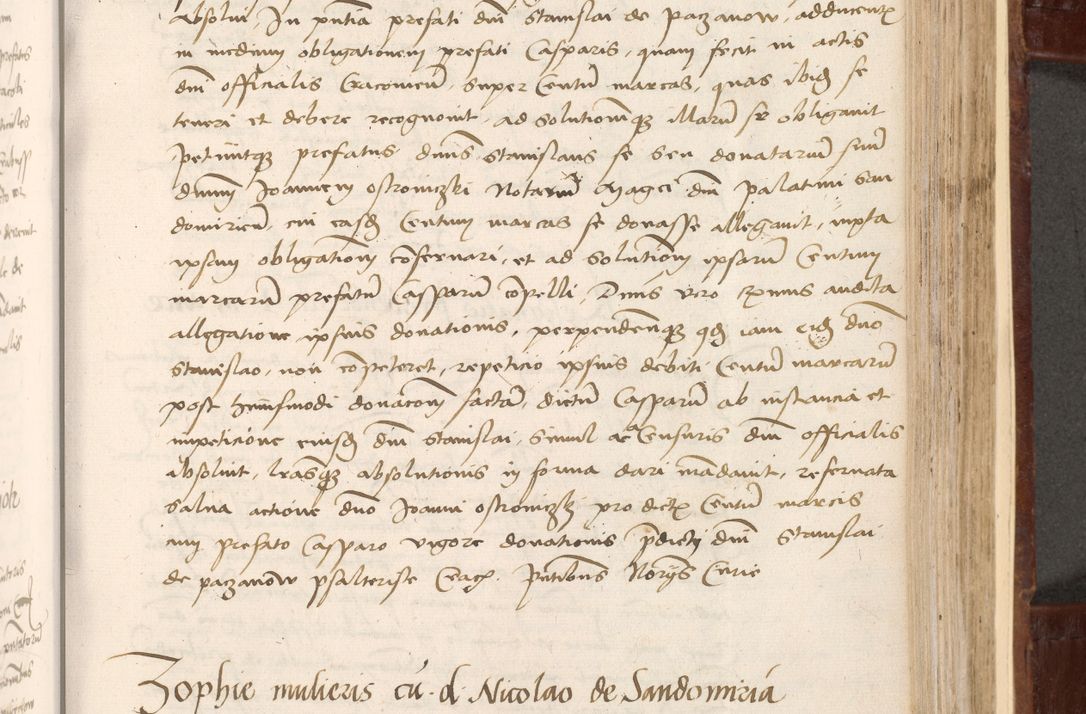 absolui, In pntia prefati dni Stanislai de Paczanow, adducente
in medium obligationem prefati Casparis, quam fecit in actis
dni officialis Cracovien, super Centu marcas, quas ibid se
teneri et debere recognovit, ad solutionemq illaru se obligavit
petivitq prefatus dnus Stanislaus se seu donatariu suu
dnum Joannem Ostroniczki Notariu Magci dni Palatini San
domirien, cui easd Centum marcas se donasse allegavit, iuxta
ipsam obligationem cōservari, et ad solutionem ipsaru Centum
marcaru prefatu Casparu cōpelli, Dnus vero audita
allegatione ipsius donationis, perpendenq qd iam eid dno
Stanislao, non cōpeteret, repeticio ipsius debiti Centu marcaru
post huiusmodi donacom factā, dictu Casparu ab instancia et
impeticione eiusd dni Stanislai, simul ac a Censuris dni officialis
absolvit, lrasq absolutionis in forma dari mādavit, reservata
salva actione dno Joanni Ostroniczki pro dictis Centu marcis
cum prefato Casparo vigore donationis pdicti dni Stanislai
de paczanow psalteriste Crac. Pntibus Norijs Curie
Zophie mulieris cū d Nicolao de Sandomiria